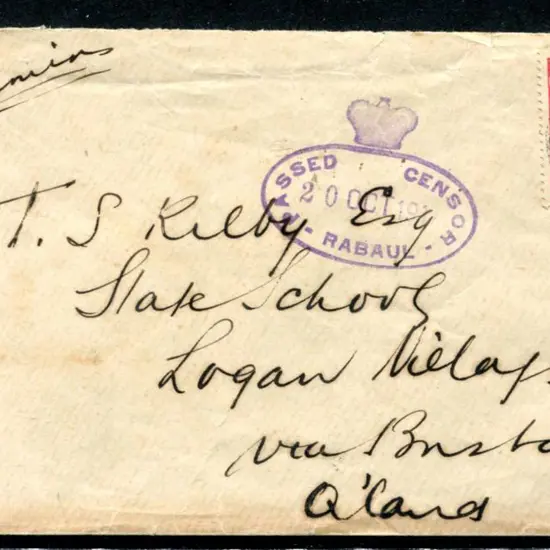 PASSED CENSOR
20 OCT 19
- RABAUL -
T. S Kilby Esq
State School
Logan Villag
via Brisba
Q'land